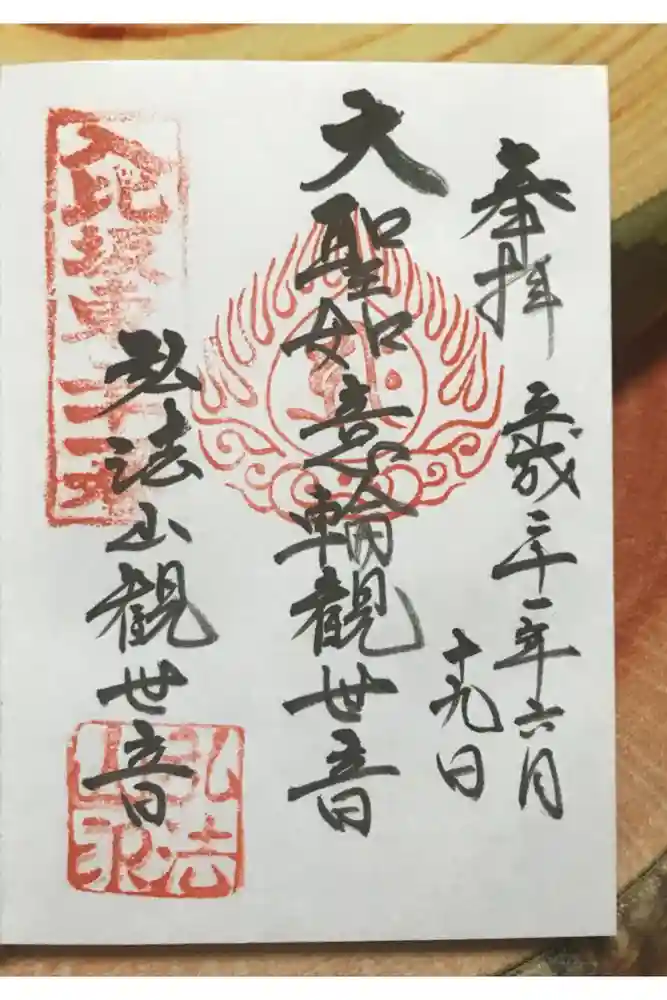 奉拝
平成三十一年六月
十九日
大聖如意輪観世音
弘法山観世音
弘法